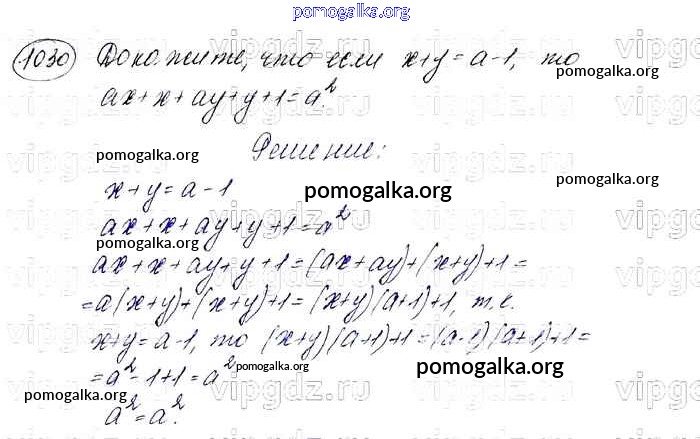 pomogalka.org
1030 Докажите, что если x+y=a-1, то
pomogalka.org
ax+x+ay+y+1=a².
Решение:
pomogalka.org
pomogalka.org
x+y=a-1
pomogalka.org
ax+x+ay+y+1=a²
pomogalka.org
ax+x+ay+y+1=(ax+ay)+(x+y)+1=
=a(x+y)+(x+y)+1=(x+y)(a+1)+1, т.к.
x+y=a-1, то (x+y)(a+1)+1=(a-1)(a+1)+1=
pomogalka.org
pomogalka.org
=a²-1+1=a²
pomogalka.org
pomogalka.org
a²=a².